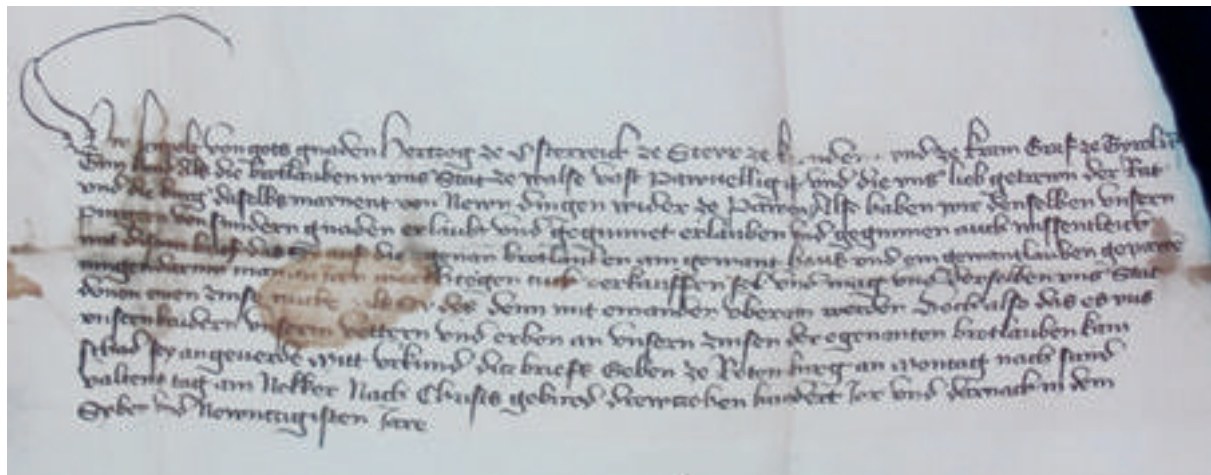 Wir Leupolt von gots gnaden Hertzog ze Osterreich ze Steyr ze kernden und ze krain Graf ze Tyrol
die brotlauben in unsrer Stat ze walse vast pawuellig ist und die uns lieb getrewn der Rat
und die burger daselbs mainent von Newn dingen wider ze pawen Also haben wir denselben unsern
purgern von sundern gnaden erlaubt und gegunnet erlauben und gegunnen auch wissentleich
mit disem brief das die egenan brotlauben ain gemain haus und ein gemainlauben
man verkauffen sol und mag und derselben unsrer Stat
denn mit einander uberain werden Doch also das es uns
unsern brudern unsern vettern und erben an unsern zinsen der egenanten brotlauben kain
schad sey angeuerde mitt urkund ditz briefs Geben ze Rotenburg an montag nach sand
valteins tag am Nekker Nach Christs geburd drewtzehen hundert Jar und darnach in dem
Syben und Newntzigisten Jare